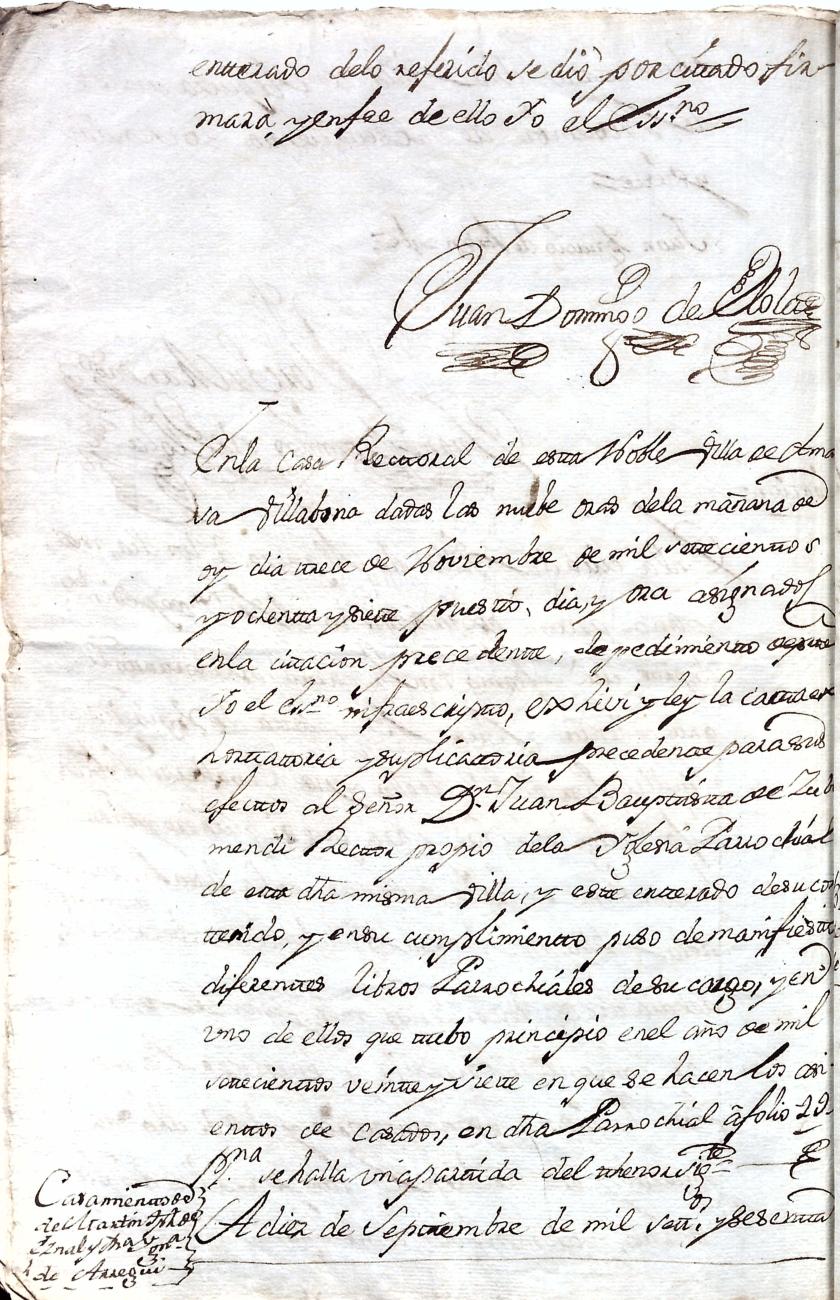 enterado delo referido se dio por citado, fir
mara, y enfee de ello Yo el Ess.no
Juan Domingo de
En la Casa Rectoral de esta Noble Villa de Ama
sa Villabona dadas las nuebe oras dela mañana de
oy dia trece de Noviembre de mil settecientos
y ochenta y siete puesto, dia, y ora asignados
en la citacion precedente, de pedimiento de parte
Yo el Ess.no infraescripto, exshivi y ley la carta ex
hortatoria y suplicatoria precedente para sus
efectos al Señor D.n Juan Bauptista de Zub
mendi Rector propio dela Yglesia Parrochial
de esta dha misma Villa, y este enterado de su con
tenido, y en su cumplimiento puso de manifiesto
diferentes libros Parrochiales de su cargo, y en
uno de ellos que tubo principio en el año de mil
settecientos veinte y siete en que se hacen los asi
entos de casados, en dha Parrochial à folio 29
se halla una partida del thenor sig.te
A diez de Septiembre de mil sett.s y sesenta
Casamiento de
de Martin Jph de
Yznal y
de Arregui